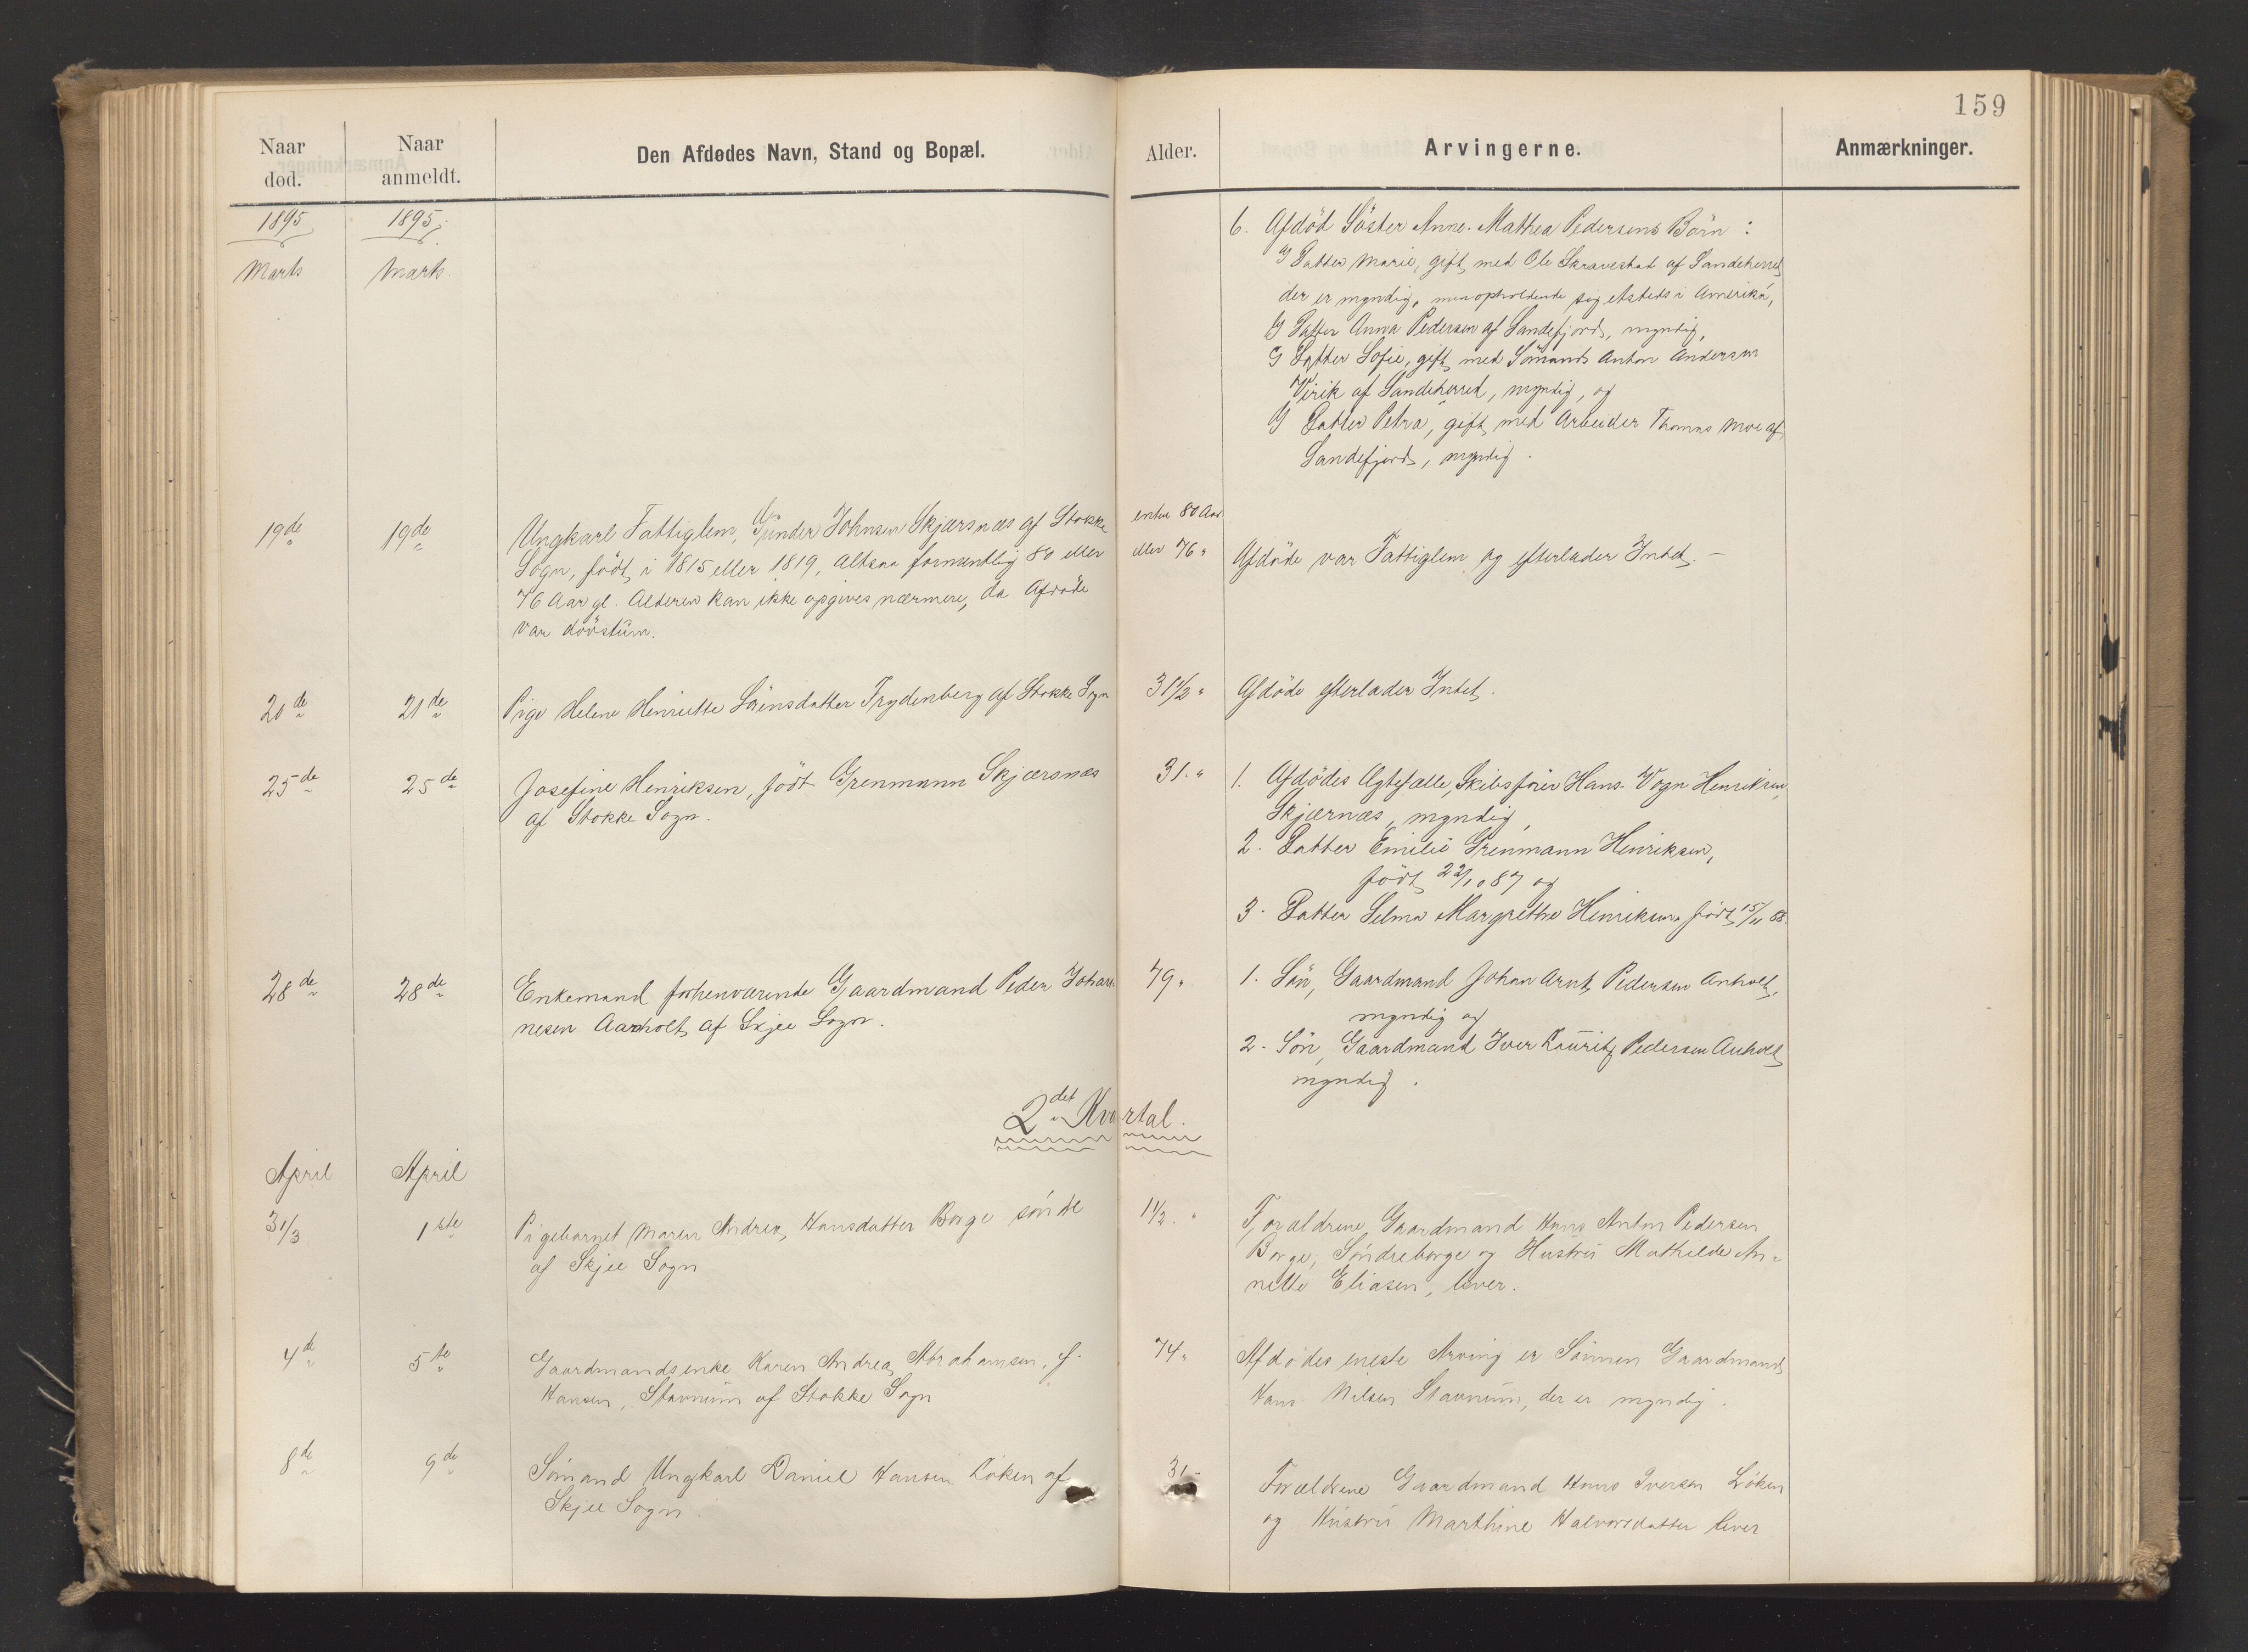 159
Naar død.
Naar anmeldt.
Den Afdødes Navn, Stand og Bopæl.
Alder.
Arvingerne.
Anmærkninger.
1895
1895
Marts
Marts.
6. Afdød Söster Anne Mathea Pedersens Börn:
Datter Marie, gift med Ole Skravestad af Sandeherred
der er myndig, men opholdende sig etsteds i Amerika,
Datter Anna Pedersen af Sandefjord, myndig,
Datter Sofie, gift med Sömand Anton Andersen
Virik af Sandeherred, myndig, og
Datter Petra, gift med Arbeider Thomas Moe af
Sandefjord, myndig.
19de
19de
Ungkarl Fattiglem, Gunder Johnsen Skjærsnæs af Stokke
Sogn, födt i 1815 eller 1819, altsaa formentlig 80 eller
76 Aar gl. Alderen kan ikke opgives nærmere, da Afdöde
var dövstum.
enten 80 Aar
eller 76 "
Afdöde var Fattiglem og efterlader Intet. —
20de
21de
Pige Helene Henriette Sörensdatter Frydenberg af Stokke Sogn
31 1/2 "
Afdöde efterlader Intet.
25de
25de
Josefine Henriksen, födt Grenmann Skjærsnæs
af Stokke Sogn.
31. "
1. Afdödes Ægtefælle, Skibsförer Hans Vogn Henriksen,
Skjærnæs, myndig,
2. Datter Emilie Grenmann Henriksen,
födt 22/10 87 og
3. Datter Selma Margrethe Henriksen födt 15/11 88.
28de
28de
Enkemand forhenværende Gaardmand Peder Johan
nesen Aarholt af Skjee Sogn.
79 "
1. Sön, Gaardmand Johan Arnt Pedersen Anholt,
myndig og
2. Sön, Gaardmand Iver Lauritz Pedersen Auholt
myndig.
2det Kvartal.
April
April
31/3
1ste
Pigebarnet Maren Andrea Hansdatter Borge söndre
af Skjee Sogn
1 1/2. "
Forældrene Gaardmand Hans Anton Pedersen
Borge, Söndreborge og Hustru Mathilde An=
nette Eliasen, lever.
4de
5te
Gaardmandsenke Karen Andrea Abrahamsen, f.
Hansen, Stavnum af Stokke Sogn
74 "
Afdödes eneste Arving er Sönnen Gaardmand
Hans Nilsen Stavnum, der er myndig.
8de
9de
Sömand Ungkarl Daniel Hansen Löken af
Skjee Sogn.
31 -
Forældrene Gaardmand Hans Iversen Löken
og Hustru Marthine Halvorsdatter lever